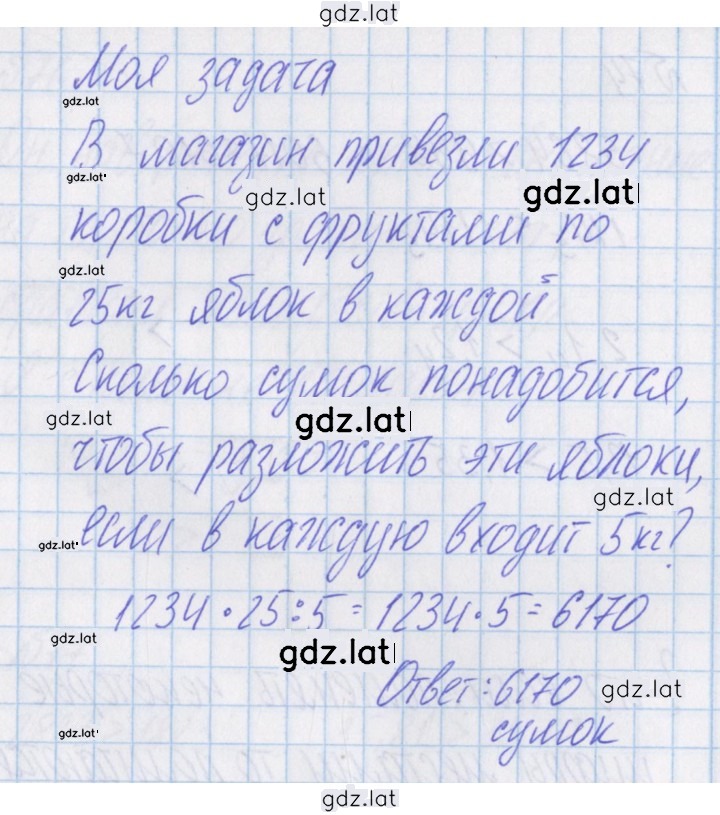 gdz.lat
Моя задача
gdz.lat
В магазин привезли 1234
gdz.lat
gdz.lat
gdz.lat
коробки с фруктами по
gdz.lat
25кг яблок в каждой
Сколько сумок понадобится,
gdz.lat
gdz.lat
чтобы разложить эти яблоки,
gdz.lat
если в каждую входит 5кг?
gdz.lat
1234·25:5=1234·5=6170
gdz.lat
gdz.lat
Ответ:6170
gdz.lat
сумок
gdz.lat
gdz.lat